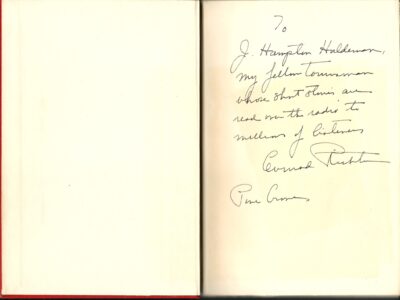 To
J. Hampton Haldeman,
my fellow townsman
whose short stories are
read over the radio to
millions of listeners
Conrad Richter
Pine Grove